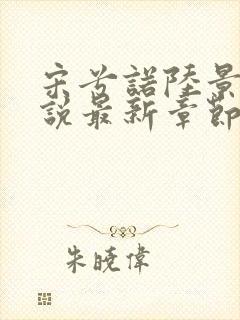 宋兮諾陸景
說最新章節
朱曉偉